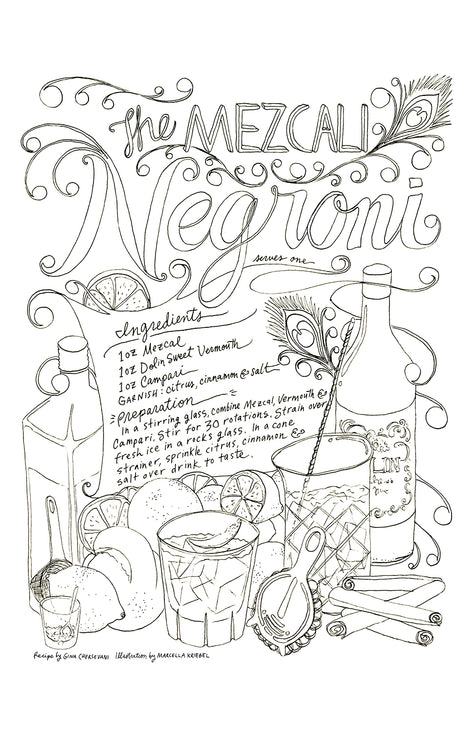 The MEZCALI
Negroni
serves one
Ingredients
1oz Mezcal
1oz Dolin Sweet Vermouth
1oz Campari
GARNISH: citrus, cinnamon & salt
Preparation
In a stirring glass, combine Mezcal, Vermouth &
Campari. Stir for 30 rotations. Strain over
fresh ice in a rocks glass. In a cone
strainer, sprinkle citrus, cinnamon &
salt over drink to taste.
LIN
Recipe by GINA CHERSEVANI Illustration by MARCELLA KRIEBEL